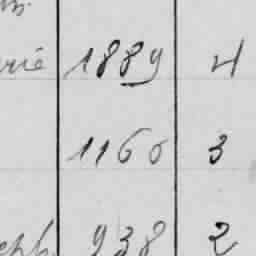 1889 4
1160 3
938 2